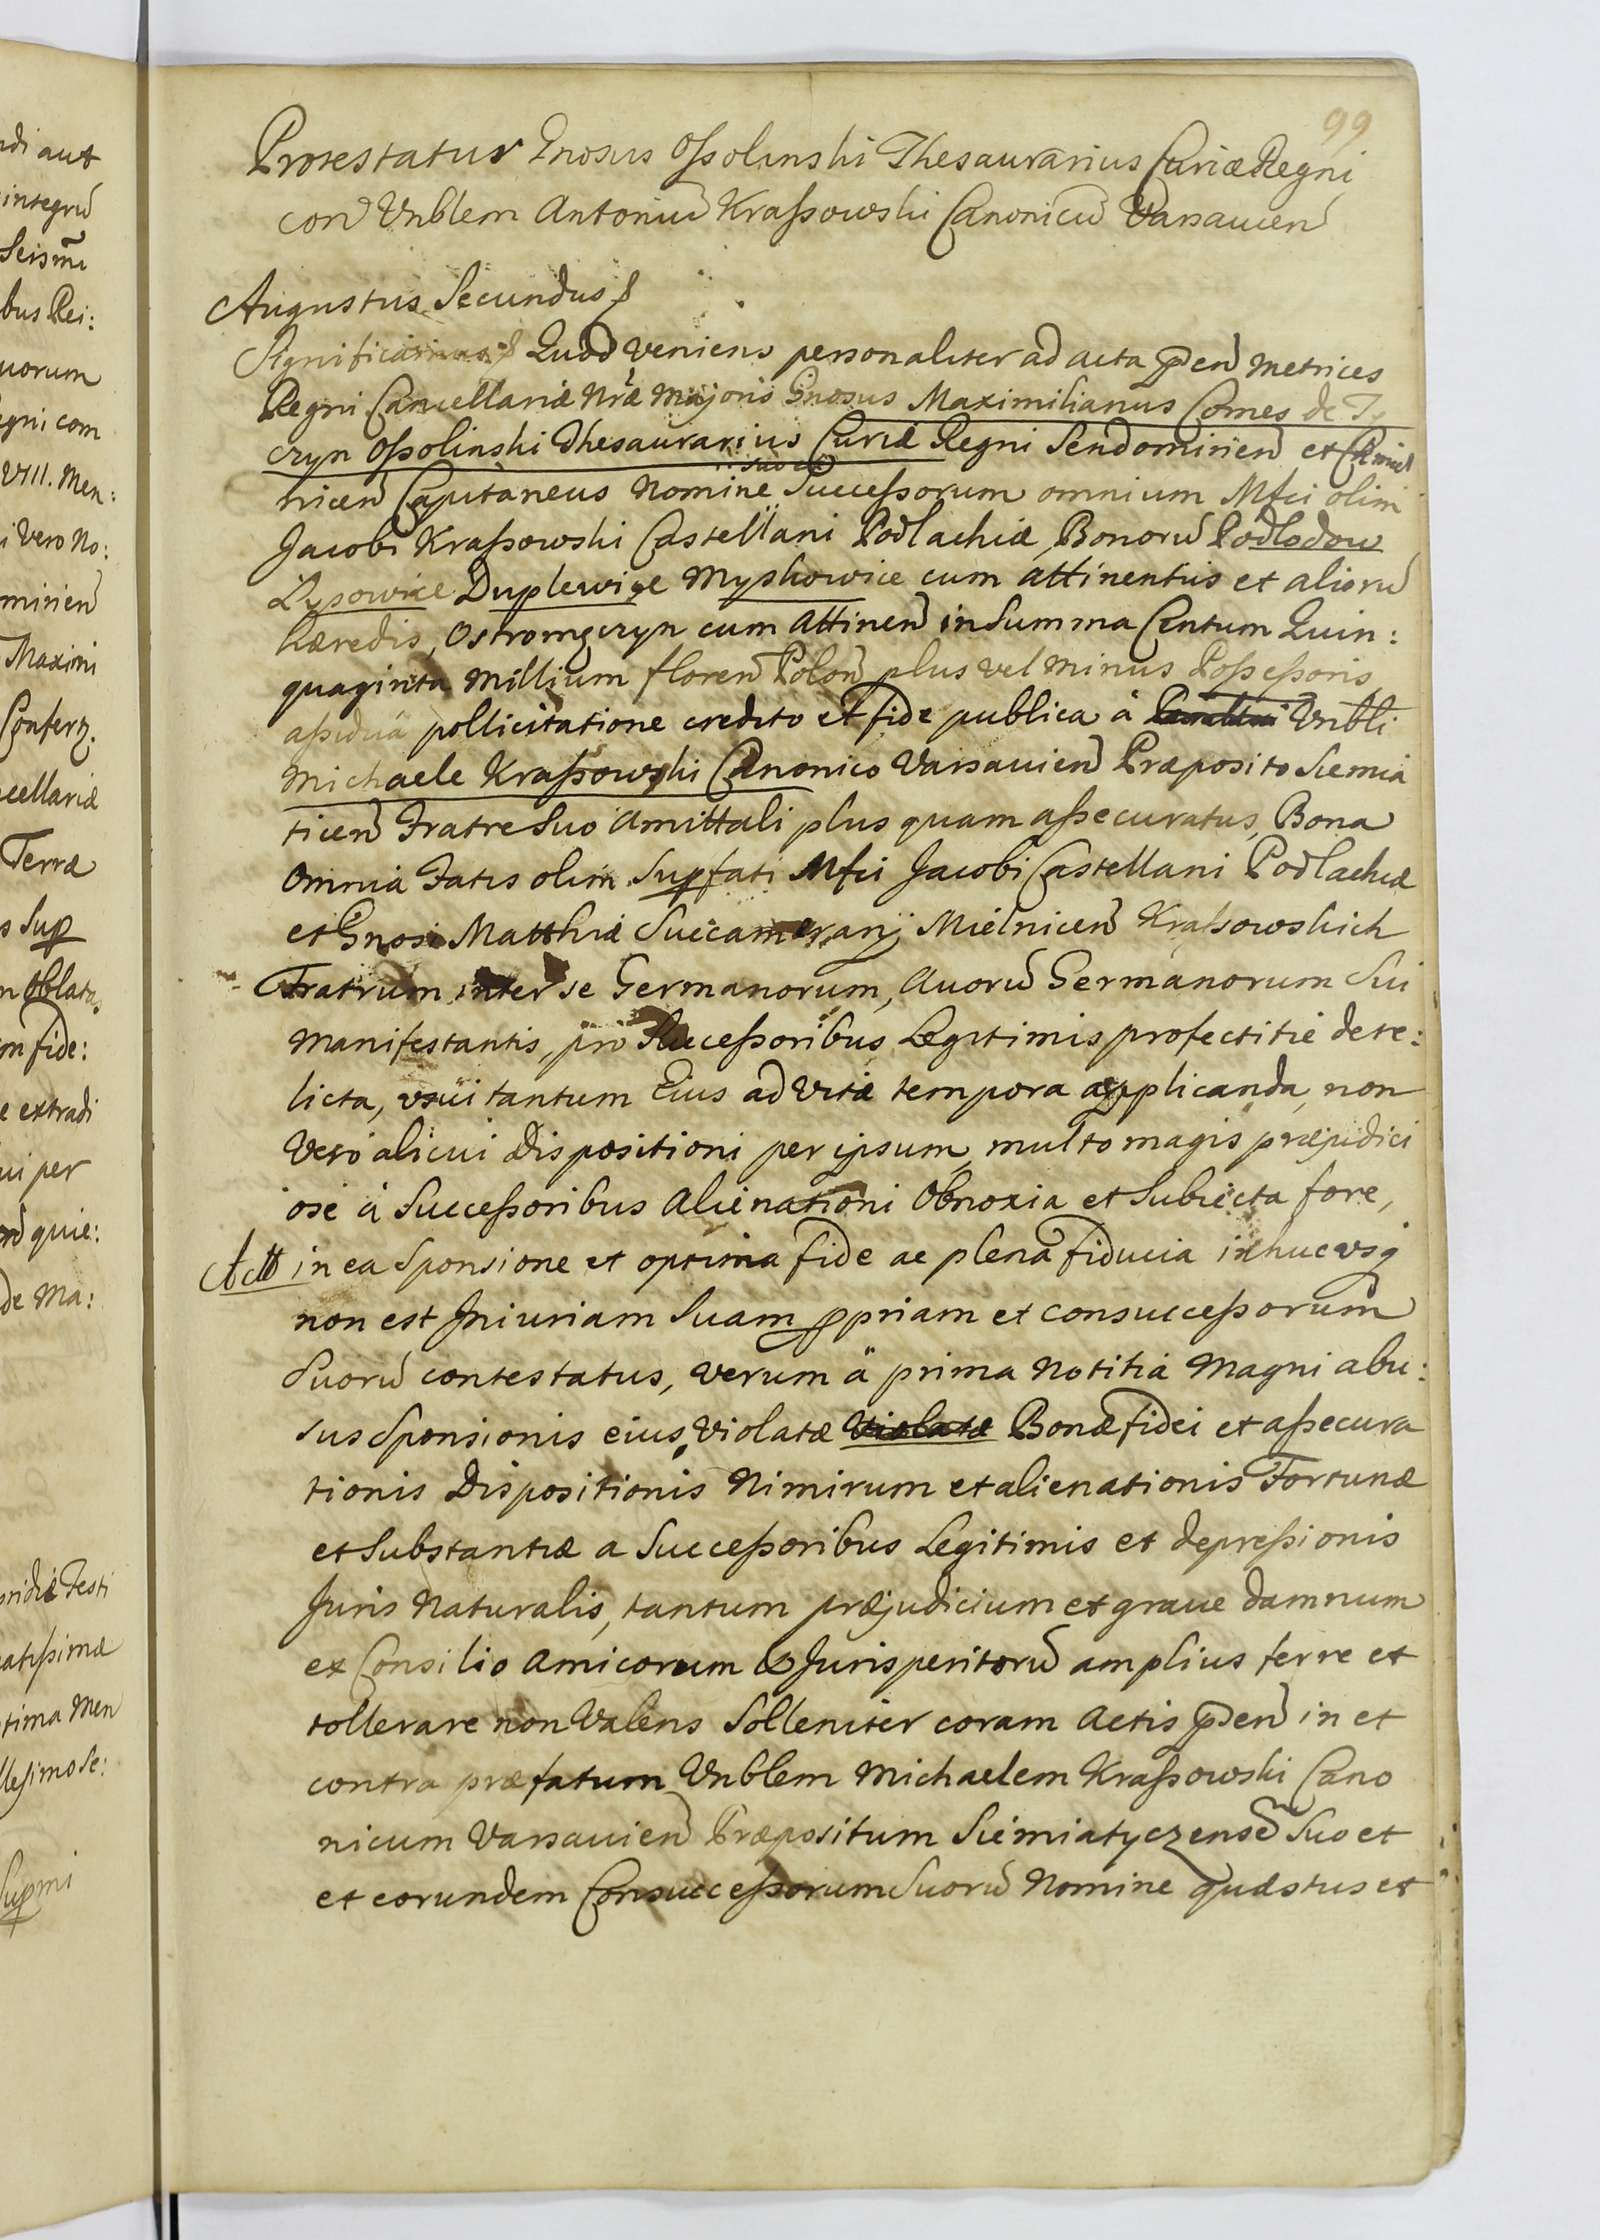 99
Protestatur Gnosus Ossolinski Thesaurarius Curiæ Regni
con Vnblem Antoniu Krassowski Canonicu Varsauien
Augustus Secundus
Significamus Quod veniens personaliter ad acta pden Metrices
Regni Cancellariæ Nræ Majoris Gnosus Maximilianus Comes de T
czyn Ossolinski Thesaurarius Curiæ Regni Sendomirien et Chmiel
nicen Capitaneus Nomine suo et Successorum omnium Mfci olim
Jacobi Krassowski Castellani Podlachiæ Bonoru Podlodow
Lysowice Duplewice Myskowice cum attinentiis et alioru
hæredis, Ostromeczyn cum Attinen in Summa Centum Quin:
quaginta Millium floren Polon plus vel minus Possessoris
assidua pollicitatione credito et fide publica â Vnbli
Michaele Krassowski Canonico Varsauien Præposito Siemia
ticen Fratre Suo Amittali plus quam assecuratus, Bona
Omnia Fatis olim Supfati Mfci Jacobi Castellani Podlachiæ
et Gnosi Matthiæ Succamerarij Mielnicen Krassowskich
Fratrum inter se Germanorum, Auoru Germanorum Sui
Manifestantis, pro Successoribus Legitimis profectitié dere:
licta, vsui tantum Eius ad vitæ tempora applicanda, non
Vero alicui Dispositioni per ipsum, multo magis præjudici
iosé á Successoribus Alienationi Obnoxia et Subiecta fore,
Act in ea Sponsione et optima fide ac plena fiducia in hucusq
non est Iniuriam Suam ppriam et consuccessorum
Suoru contestatus, verum â prima Notitia Magni abu:
sus Sponsionis eius, Violatæ Violatæ Bonæ fidei et assecura
tionis Dispositionis Nimirum et alienationis Fortunæ
et Substantiæ a Successoribus Legitimis et depressionis
Juris Naturalis, tantum præjudicium et graue damnum
ex Consilio Amicorum & Jurisperitoru amplius ferre et
tollerare non Valens Solleniter coram Actis pden in et
contra præfatum Vnblem Michaelem Krassowski Cano
nicum Varsauien Præpositum Siemiatyczensem Suo et
et eorundem Consuccessorum Suoru Nomine quæstus et